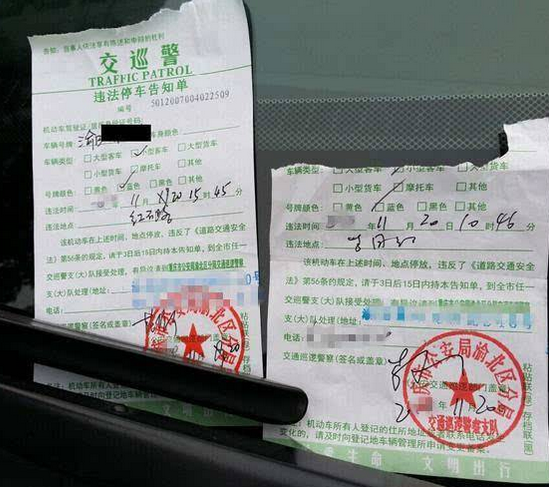 告知：当事人依法享有陈述和申辩的权利
交巡警
TRAFFIC PATROL
违法停车告知单
编号 5012007004022509
车辆号牌：渝
车身颜色：
车辆类型： 大型客车 小型客车 大型货车
小型货车 摩托车 其他
号牌颜色： 黄色 蓝色 黑色 其他
违法时间： 11 20 15 45分
违法地点： 红石路
该机动车在上述时间、地点停放，违反了《道路交通安全
法》第56条的规定，请于3日后15日内持本告知单，到全市任一
交巡警支(大)队接受处理。
重庆市公安局渝北区分局交通巡逻警察
支(大)队处理(地址：
电话：
交通巡逻警察(签名或盖章)
车辆类型： 大型客车 小型客车 大型货车
小型货车 摩托车 其他
号牌颜色： 黄色 蓝色 黑色 其他
违法时间： 11月20日10时46分
违法地点：
该机动车在上述时间、地点停放，违反了《道路交通安全
法》第56条的规定，请于3日后15日内持本告知单，到全市任一
交巡警支(大)队接受处理。
重庆市公安局渝北区分局交通巡逻警察
支(大)队处理(地址：
电话：
交通巡逻警察(签名或盖章)
安局渝北区分局
交通巡逻警察支队
11 20
注：机动车所有人登记的住所地址或者联系电话发生
变化的，请及时向登记地车辆管理所申请变更备案。
生命 文明出行